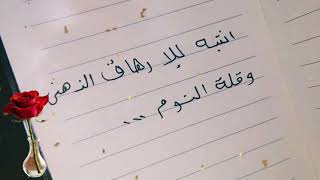 انتبه للإرهاق الذهني
وقلة النوم ...